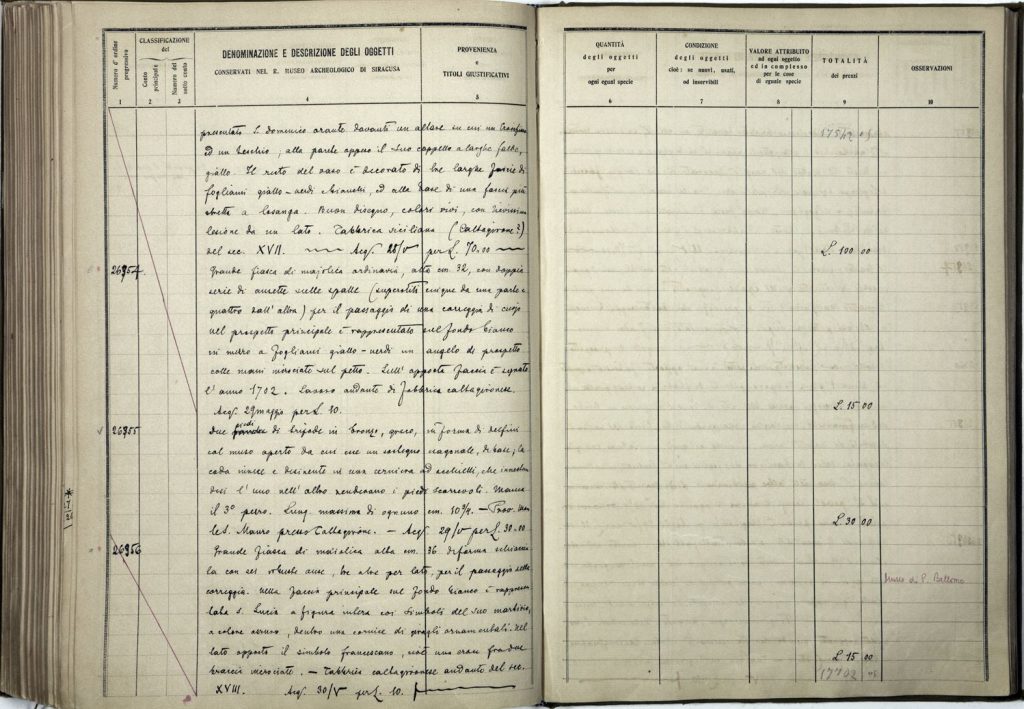 Numero d'ordine progressivo
CLASSIFICAZIONE del
Conto principale
Numero del sotto conto
DENOMINAZIONE E DESCRIZIONE DEGLI OGGETTI
CONSERVATI NEL R. MUSEO ARCHEOLOGICO DI SIRACUSA
PROVENIENZA
e
TITOLI GIUSTIFICATIVI
1 2 3 4 5
presentato S. Domenico orante davanti un altare su cui un Crocifisso
ed un teschio; alla parete appeso il suo cappello a larghe falde,
giallo. Il resto del vaso è decorato di tre larghe fascie di
fogliami giallo-verdi bianchi, ed alla base di una fascia più
stretta a losanga. Buon disegno, colori vivi, con
lesione da un lato. Fabbrica siciliana (Caltagirone?)
del sec. XVII. Acq. 28/V per L. 70.00
26954 Grande fiasca di majolica ordinaria, alta cm. 32, con doppia
serie di ansette sulle spalle (superstiti cinque da una parte e
quattro dall'altra) per il passaggio di una correggia di cuojo
nel prospetto principale è rappresentato sul fondo bianco
in mezzo a fogliami giallo-verdi un angelo di prospetto
colle mani incrociate sul petto. Sull'opposta faccia è segnato
l'anno 1702. Lavoro andante di fabbrica caltagironese.
Acq. 29 maggio per L. 10.
26955 Due piedi di tripode in bronzo, in forma di delfini
col muso aperto da cui esce un sostegno di base; la
coda riesce e desinente in una cerniera ad occhietti, che
l'uno nell'altro rendevano i piedi scorrevoli. Manca
il 3° pezzo. Lung. massima di ognuno cm. 10 Prov. Mon
te S. Mauro presso Caltagirone. - Acq. 29/V per L. 30.00
26956 Grande fiasca di maiolica alta cm. 36 di forma schiaccia
ta con sei robuste anse, tre altre per lato, per il passaggio della
correggia. Nella faccia principale sul fondo bianco è rappresen
tata S. Lucia a figura intera coi simboli del suo martirio,
a colore dentro una cornice di ornamentali. Nel
lato opposto il simbolo francescano, cioè una croce fra due
braccia incrociate. - Fabbrica caltagironese andante del sec.
XVIII. Acq. 30/V per L. 10.
QUANTITÀ
degli oggetti
per
ogni egual specie
CONDIZIONE
degli oggetti
cioè: se nuovi, usati,
od inservibili
VALORE ATTRIBUITO
ad ogni oggetto
ed in complesso
per le cose
di eguale specie
TOTALITÀ
dei prezzi
OSSERVAZIONI
6 7 8 9 10
L. 100 00
L. 15 00
L. 30 00
Museo di P. Bellomo
L. 15 00
17702 05